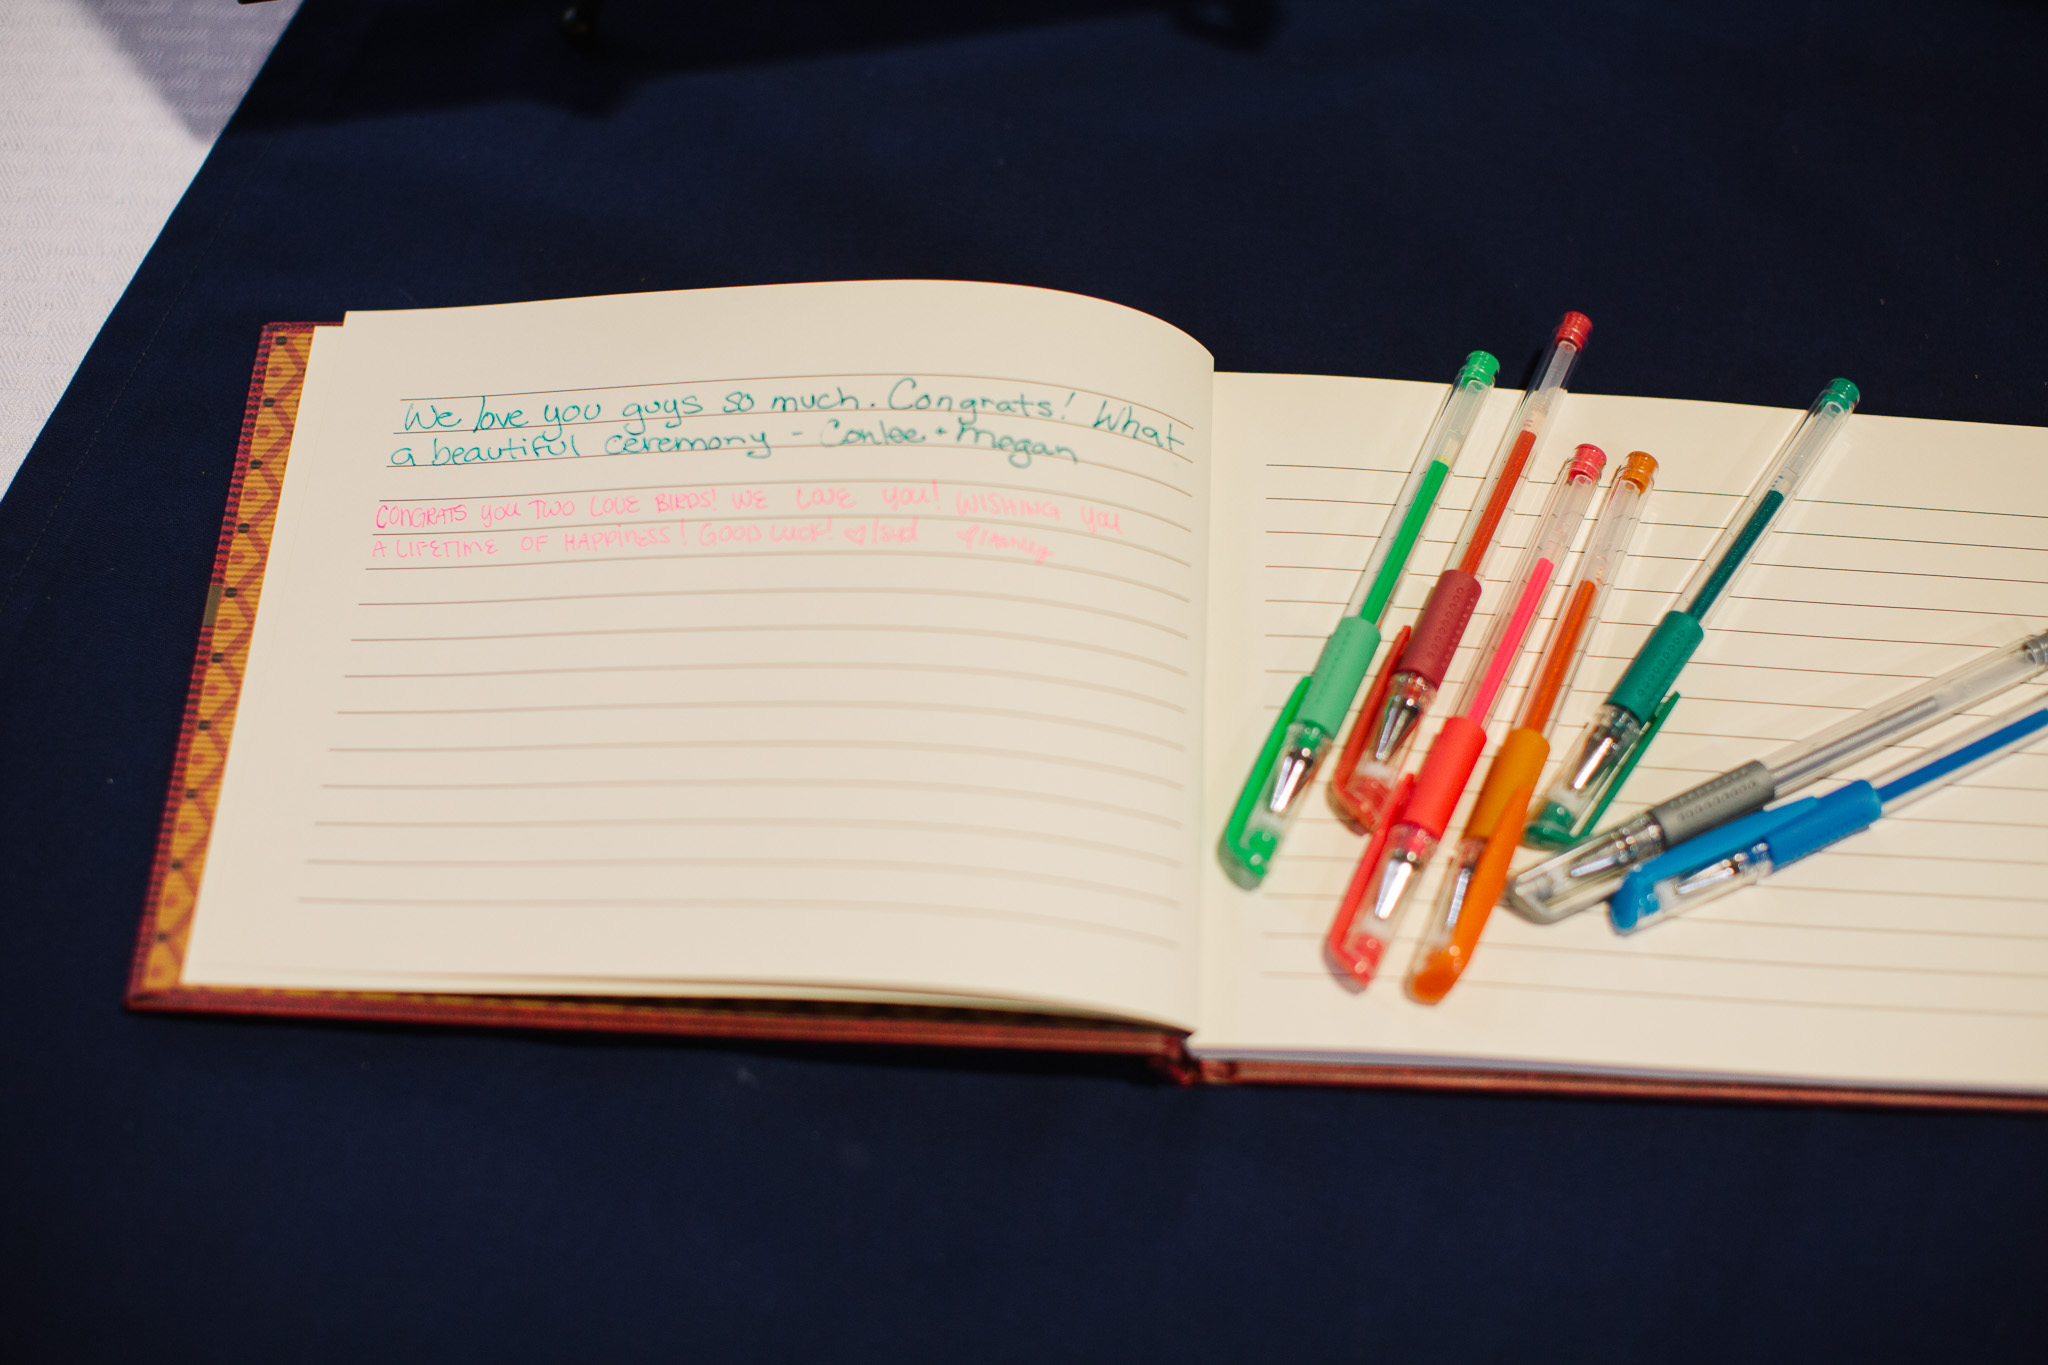 We love you guys so much. Congrats! What
a beautiful ceremony - Conlee + Megan
CONGRATS YOU TWO LOVE BIRDS! WE LOVE YOU! WISHING YOU
A LIFETIME OF HAPPINESS! GOOD LUCK! ♡/Syd ♡/